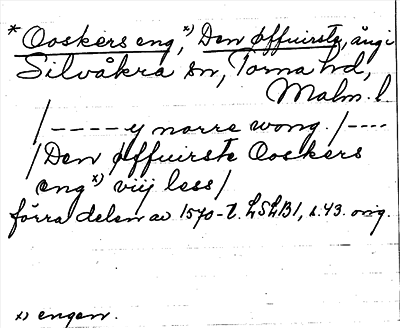 * Ooskers eng,ˣ⁾ Den øffuirste, äng i
Silvåkra sn, Torna hd,
Malm. l.
/----y norre wong./----
/Den øffuirste Ooskers
engˣ⁾ viij less/
förra delen av 1570-t. LSLB1, s.43. orig.
x) engen.